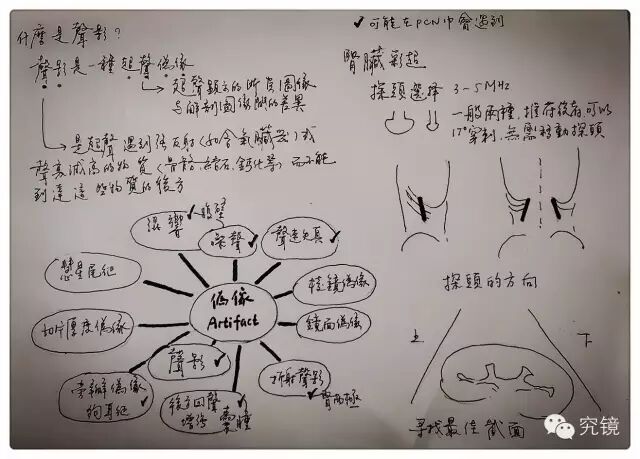 什麼是聲影?
聲影是一種超聲偽像
超聲顯示的斷層圖像
與解剖圖像間的差異
是超聲遇到強反射(如含氣臟器)或
聲衰減高的物質(骨骼、結石、鈣化等)而不能
到達這些物質的後方
混響
腹壁
噪聲
聲速失真
彗星尾徵
棱鏡偽像
偽像
Artifact
切片厚度偽像
鏡面偽像
聲影
旁瓣偽像
後方回聲
增強
囊腫
折射聲影
腎兩極
✓可能在PCN中會遇到
腎臟彩超
探頭選擇 3-5MHz
一般兩種,推荐後者,可以
穿刺,無需移動探頭
探頭的方向
上
下
尋找最佳截面
究镜